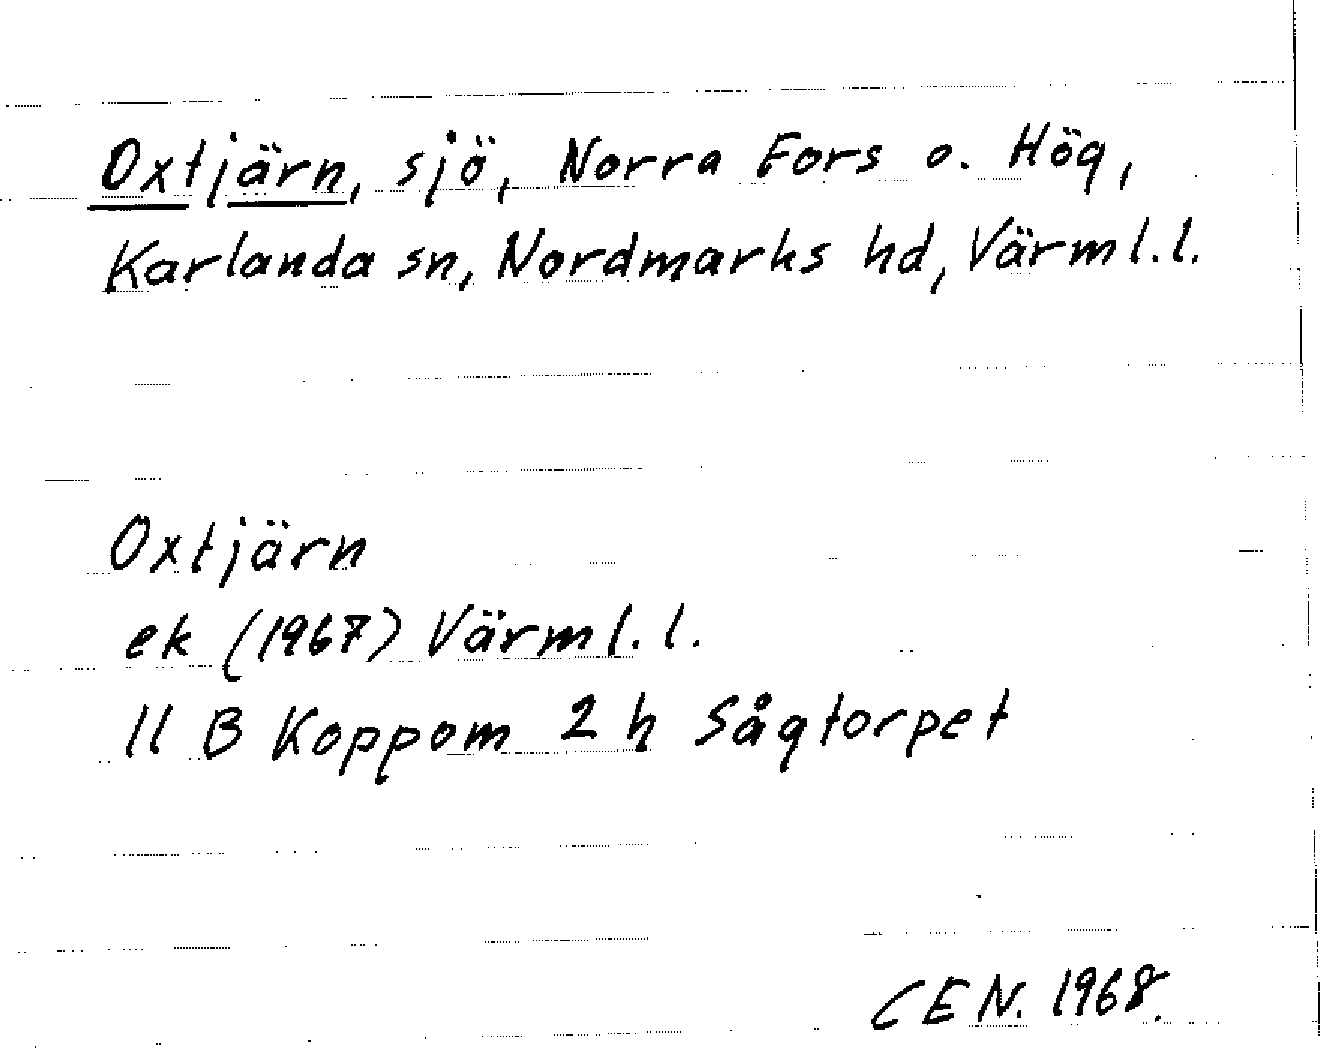 Oxtjärn, sjö, Norra Fors o. Hög,
Karlanda sn, Nordmarks hd, Värml.l.
Oxtjärn
ek (1967) Värml.l.
11 B Koppom 2 h Sågtorpet
CEN. 1968.